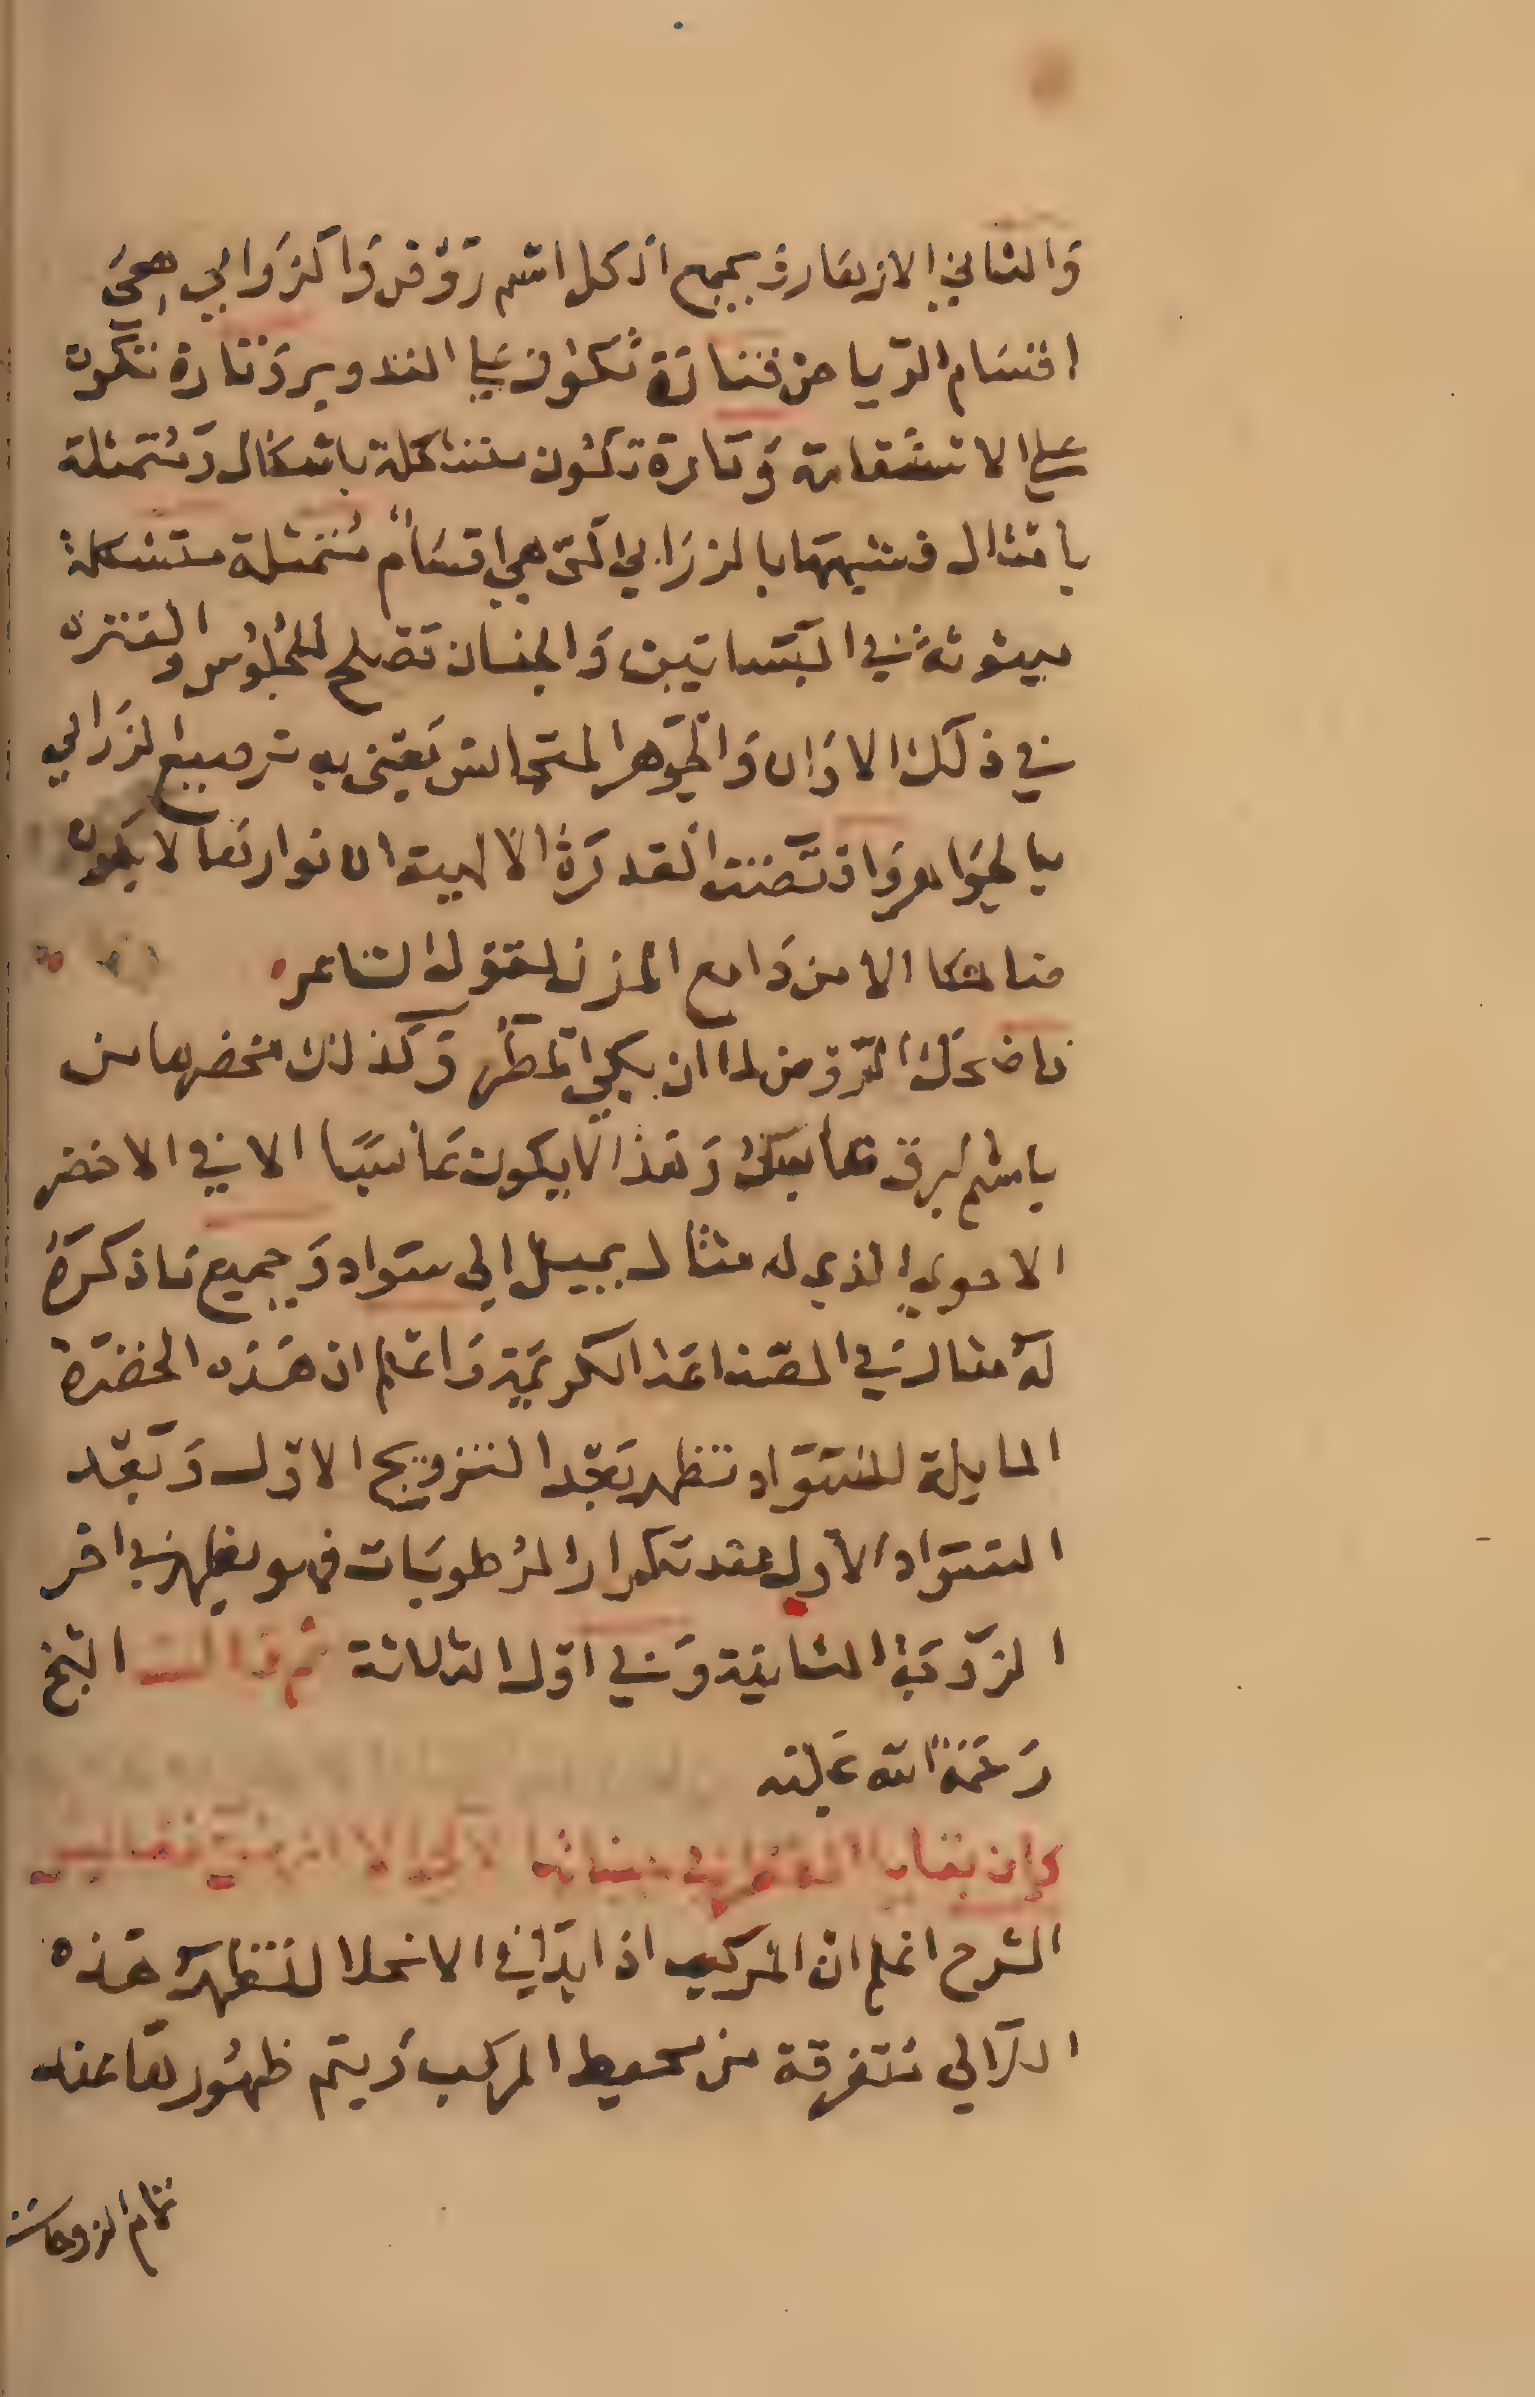 والثاني الازهار وبجمع اذ كل اسم روض والزوابي هي
اقسام الرياض فتارة تكون علي التدوير وتارة تكون
علي الاستقامة وتارة تكون متشكلة باشكال ومتمثلة
بامثال فشبهها بالزرابي التي هي اقسام متمثلة متشكلة
مبثوثة في البساتين والجنان تصلح للجلوس والتنزه
في ذلك الاوان والجوهر المتجانس يعني به ترصيع الزرابي
بالجواهر واقتضت القدرة الالهية ان نوارها لا يكون
ضاحكا الا من دامع المزن لقول الشاعر
ما ضحك الروض لما ان بكي المطر وكذلك تخصيصها من
باسم لبرق ضاحك وهذا لا يكون مناسبا الا في الاخضر
الاحوي الذي له مثال يميل الي سواد وجميع ما ذكره
له مثال في الصناعة الكريمة واعلم ان هذه الخضرة
المايلة للسواد تظهر بعد التزويج الاول وبعد
السواد الاول عند تكرار الرطوبات فهو يظهر في اخر
الزوجة الثانية وفي اول الثالثة ثم قال الشيخ
رحمة الله عليه
وان نهار لالي الا
الشرح اعلم ان المركب اذا بدا في الانحلال تظهر هذه
اللالي متفرقة من محيط المركب ويتم ظهورها عند
تمام الزوجات